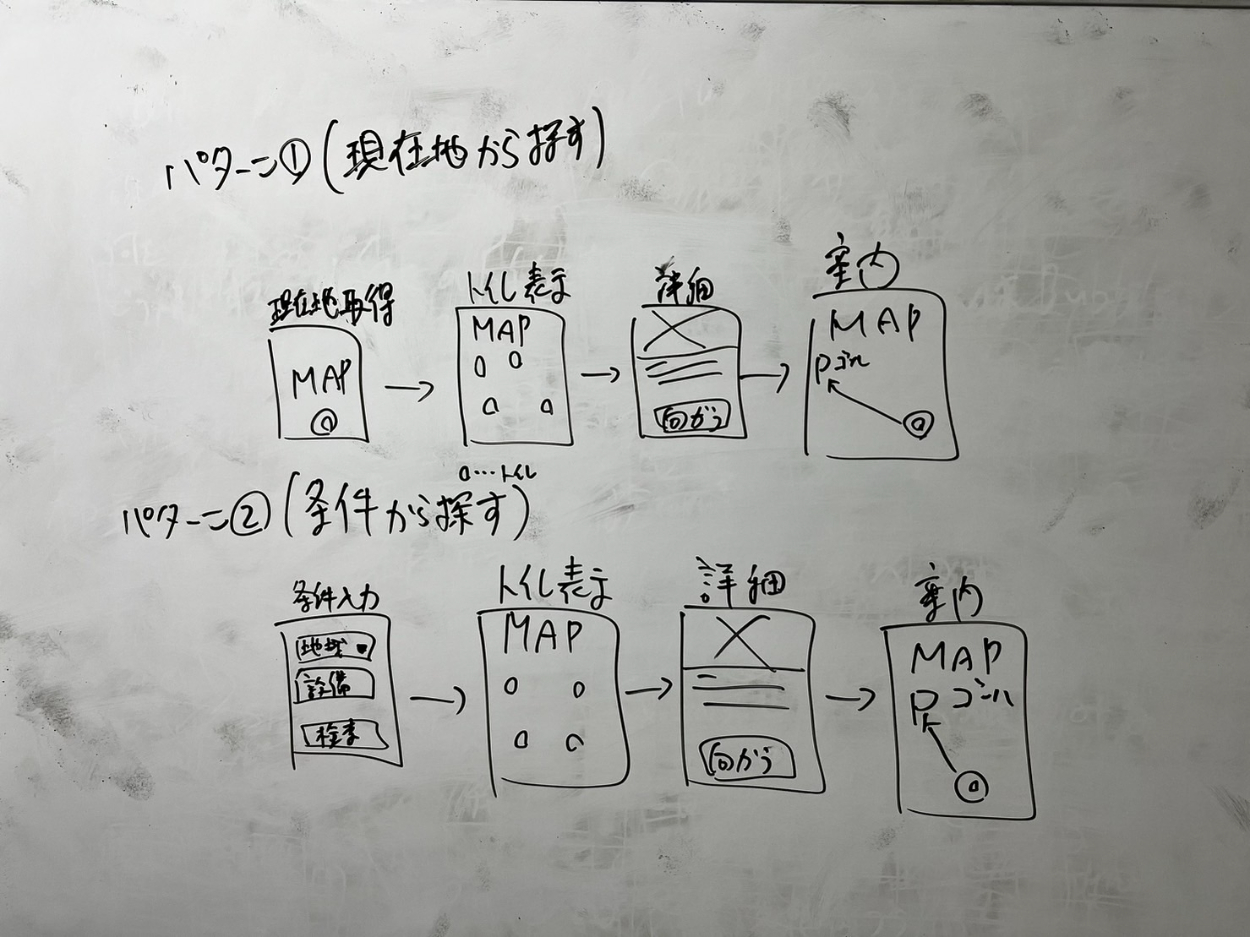 パターン①(現在地から探す)
現在地取得
MAP
トイレ表示
MAP
○…トイレ
詳細
向かう
案内
MAP
ゴール
パターン②(条件から探す)
条件入力
地域
設備
検索
トイレ表示
MAP
詳細
向かう
案内
MAP
ゴール